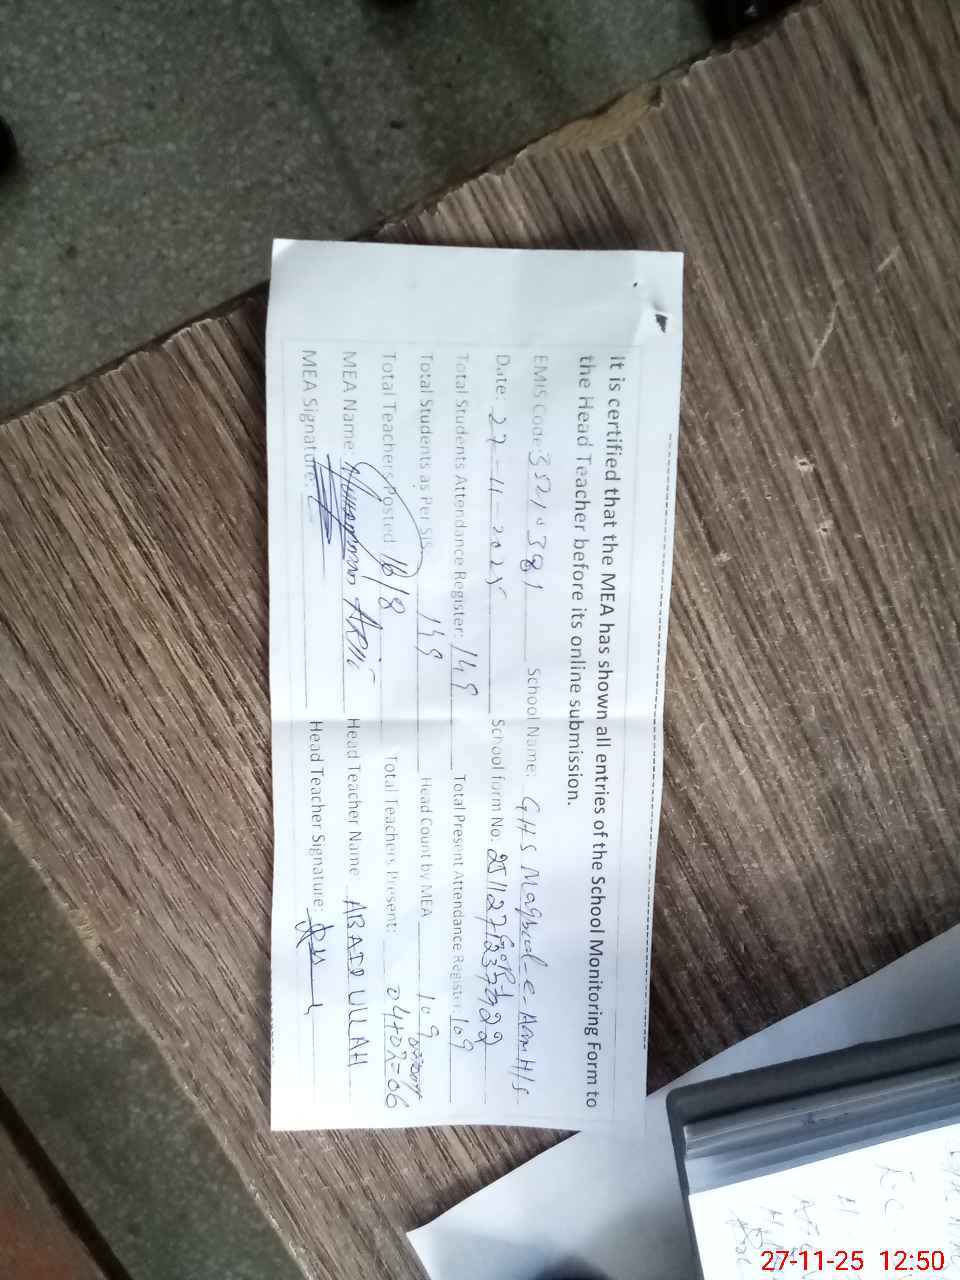 It is certified that the MEA has shown all entries of the School Monitoring Form to
the Head Teacher before its online submission.
EMIS Code: 35210381 School Name: GHS Maqbool-e-Aam H/S
Date: 27-11-2025 School form No.
Total Students Attendance Register: 149 Total Present Attendance Register: 109
Total Students as Per SIS 149 Head Count by MEA 109
Total Teachers Posted 16/8 Total Teachers Present: 04+02=06
MEA Name: Head Teacher Name ABAID ULLAH
MEA Signature: Head Teacher Signature:
27-11-25 12:50